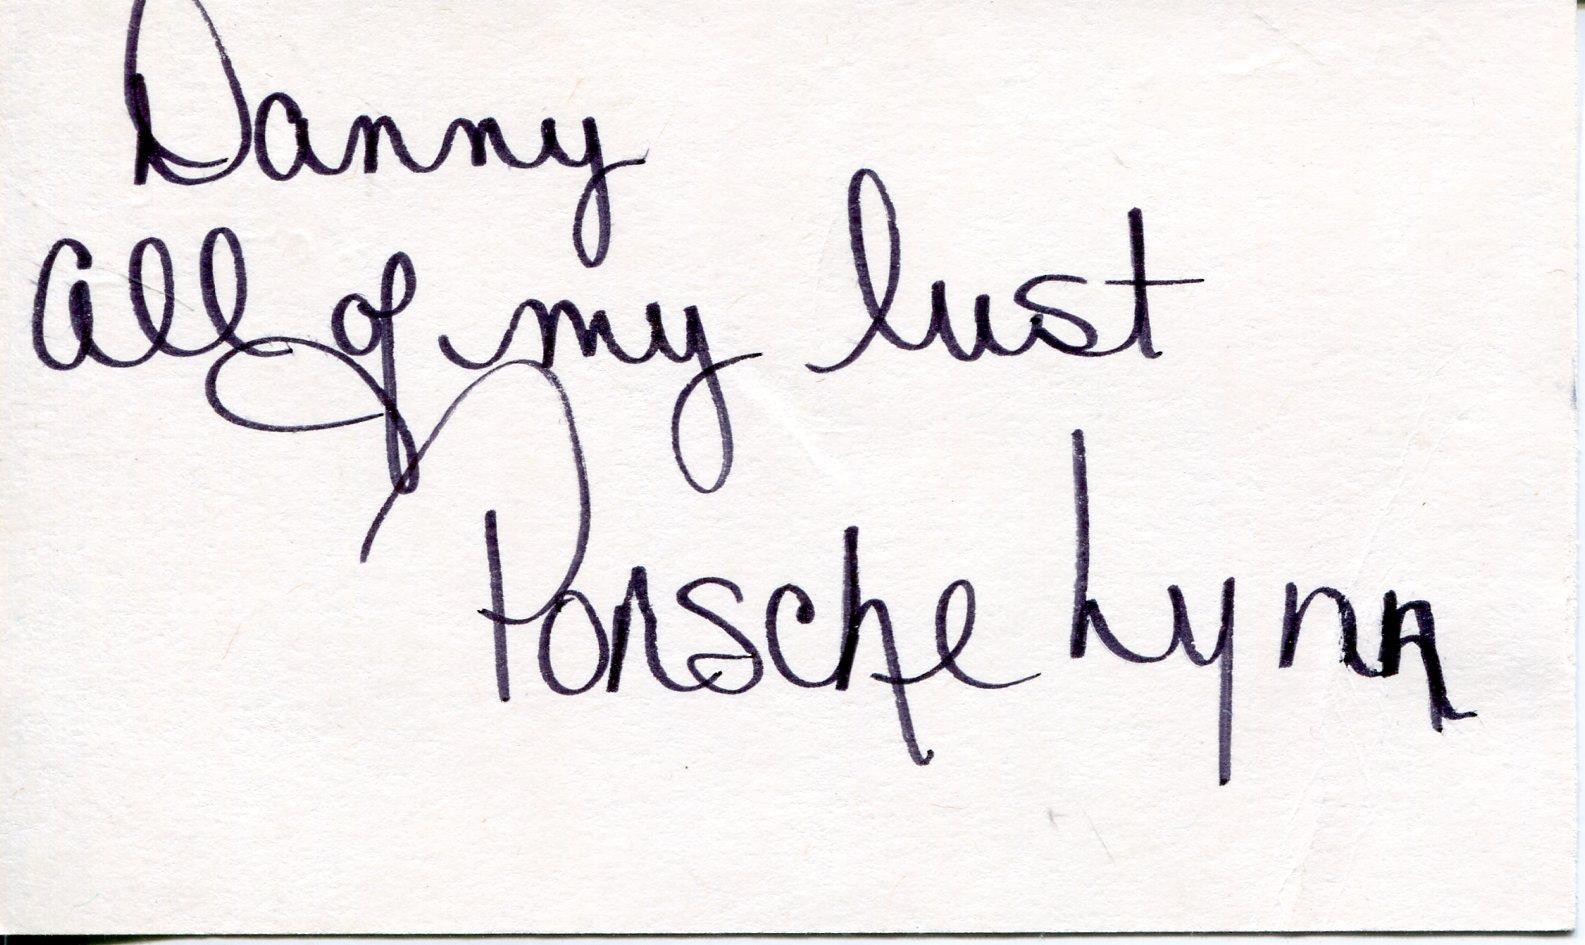 Danny
all of my lust
Porsche Lynn